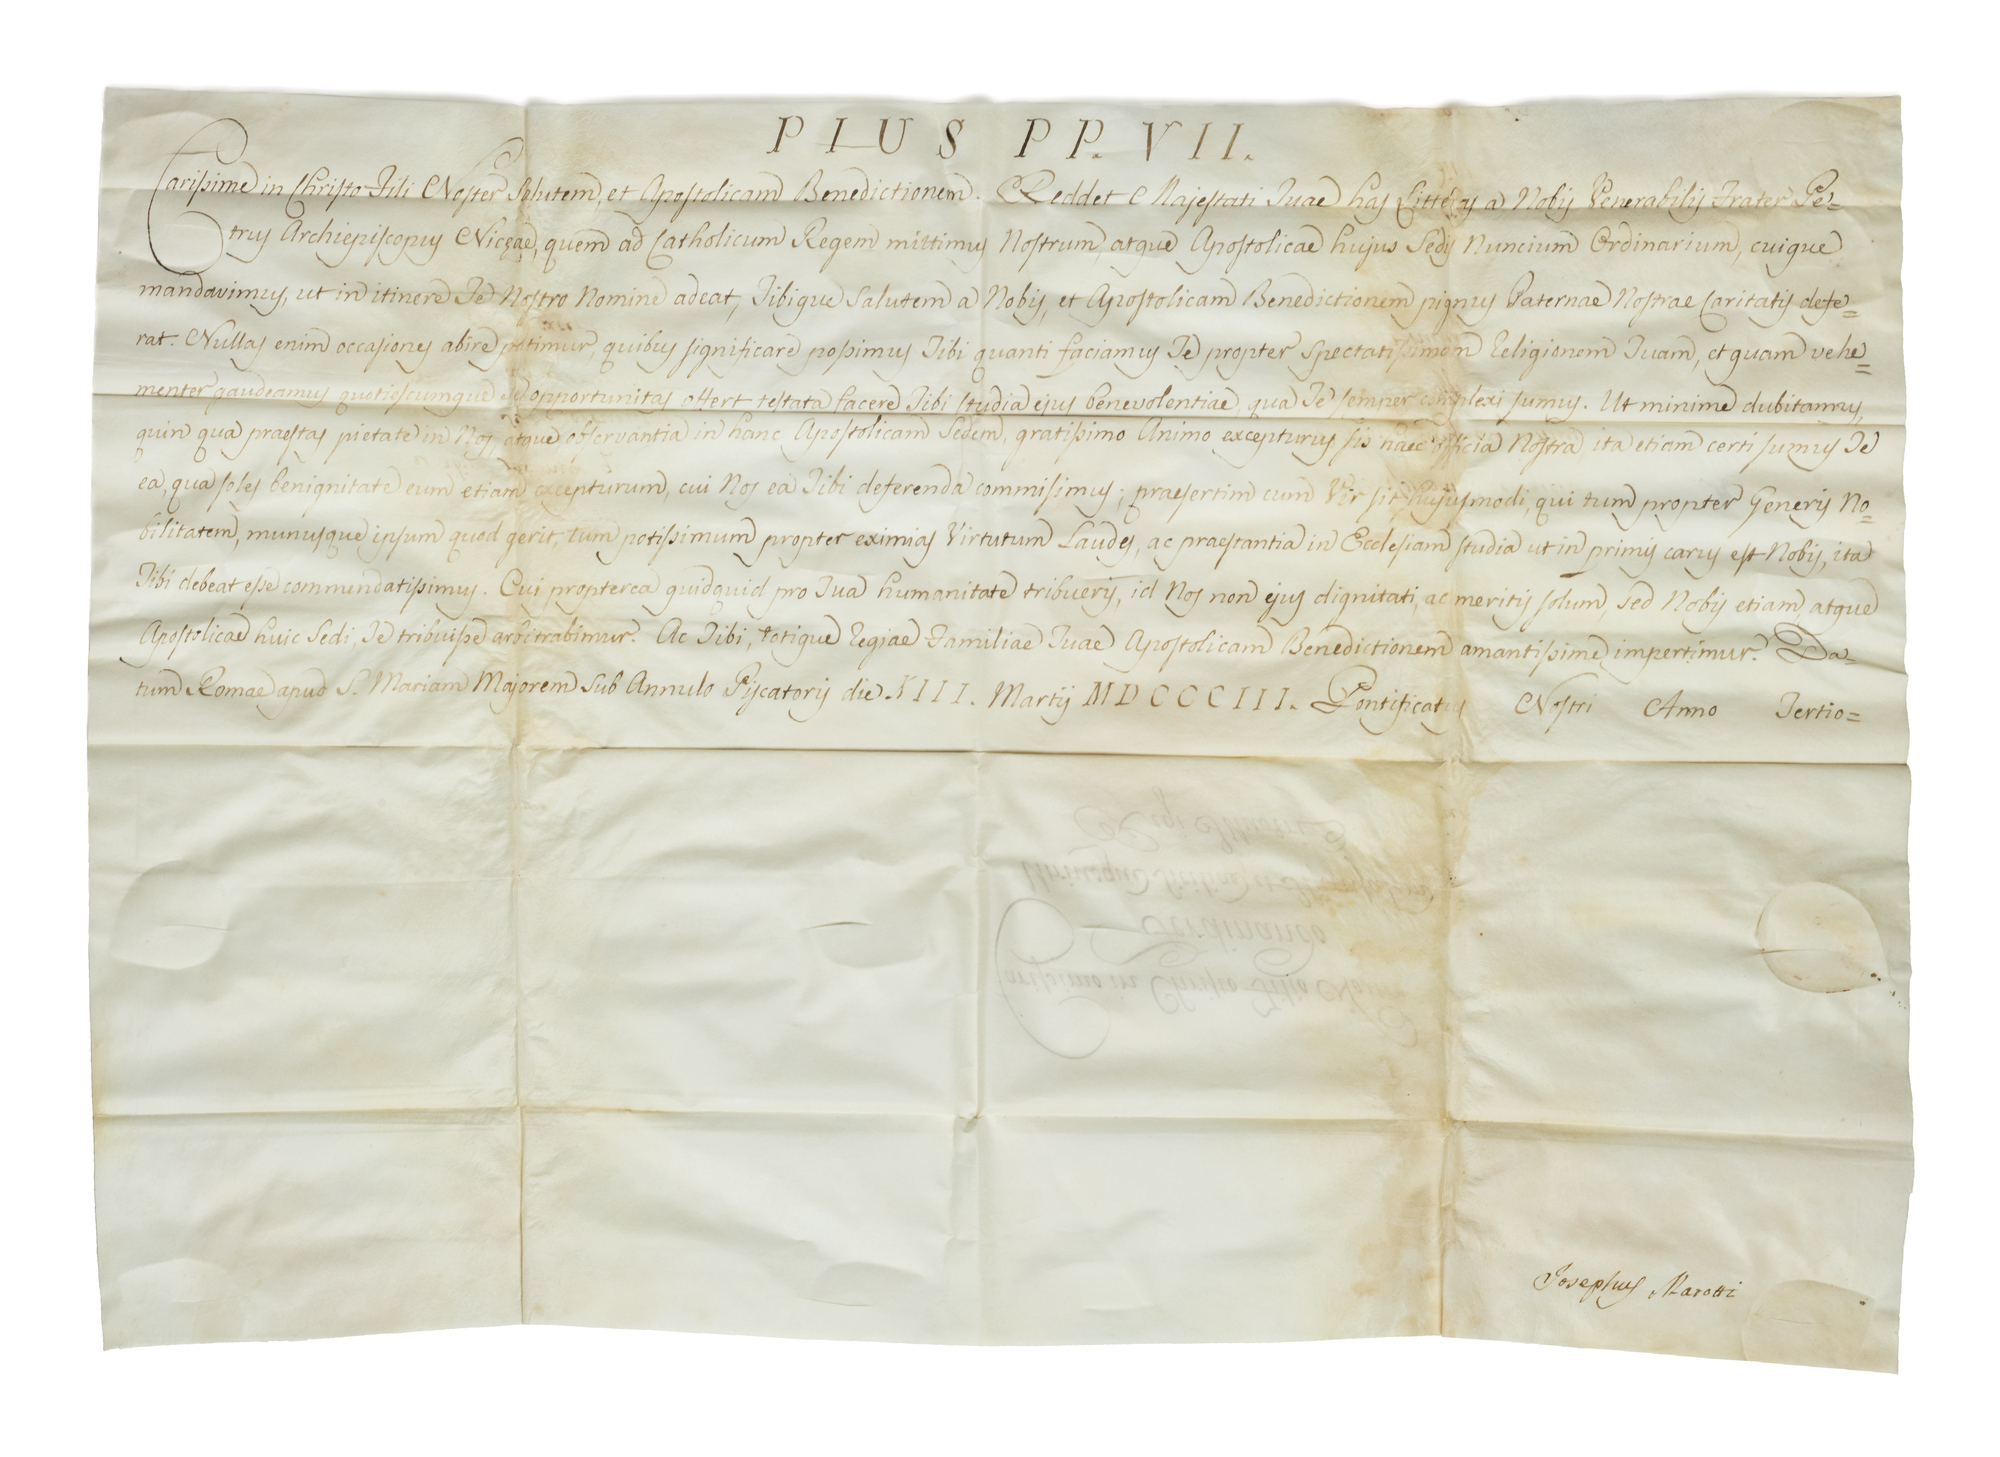 PIUS PP. VII.
Carissime in Christo Fili Noster Salutem, et Apostolicam Benedictionem. Reddet Majestati Tuae has Litteras a Nobis Venerabilis Frater Pe=
trus Archiepiscopus Nicęae, quem ad Catholicum Regem mittimus Nostrum, atque Apostolicae hujus Sedis Nuncium Ordinarium, cuique
mandavimus, ut in itinere Te Nostro Nomine adeat, Tibique Salutem a Nobis, et Apostolicam Benedictionem pignus Paternae Nostrae Caritatis defe=
rat. Nullas enim occasiones abire patimur, quibus significare possimus Tibi quanti faciamus Te propter spectatissimam Religionem Tuam, et quam vehe=
menter gaudeamus quotiescumque se opportunitas offert testata facere Tibi studia ejus benevolentiae, qua Te semper complexi sumus. Ut minime dubitamus,
quin qua praestas pietate in Nos, atque observantia in hanc Apostolicam Sedem, gratissimo Animo excepturus sis haec officia Nostra, ita etiam certi sumus Te
ea, qua soles benignitate eum etiam excepturum, cui Nos ea Tibi deferenda commisimus; praesertim cum Vir sit hujusmodi, qui tum propter Generis No=
bilitatem, munusque ipsum quod gerit, tum potissimum propter eximias Virtutum Laudes, ac praestantia in Ecclesiam studia ut in primis carus est Nobis, ita
Tibi debeat esse commendatissimus. Cui propterea quidquid pro Tua humanitate tribueris, id Nos non ejus dignitati, ac meritis solum, sed Nobis etiam, atque
Apostolicae huic Sedi, Te tribuisse arbitrabimur. Ac Tibi, totique Regiae Familiae Tuae Apostolicam Benedictionem amantissime impertimur. Da=
tum Romae apud S. Mariam Majorem sub Annulo Piscatoris die XIII. Martij MDCCCIII. Pontificatus Nostri Anno Tertio=
Regi Illustri
Utriusque Siciliae et
Ferdinando
Carissimo in Christo Filio Nostro
Josephus Marotti